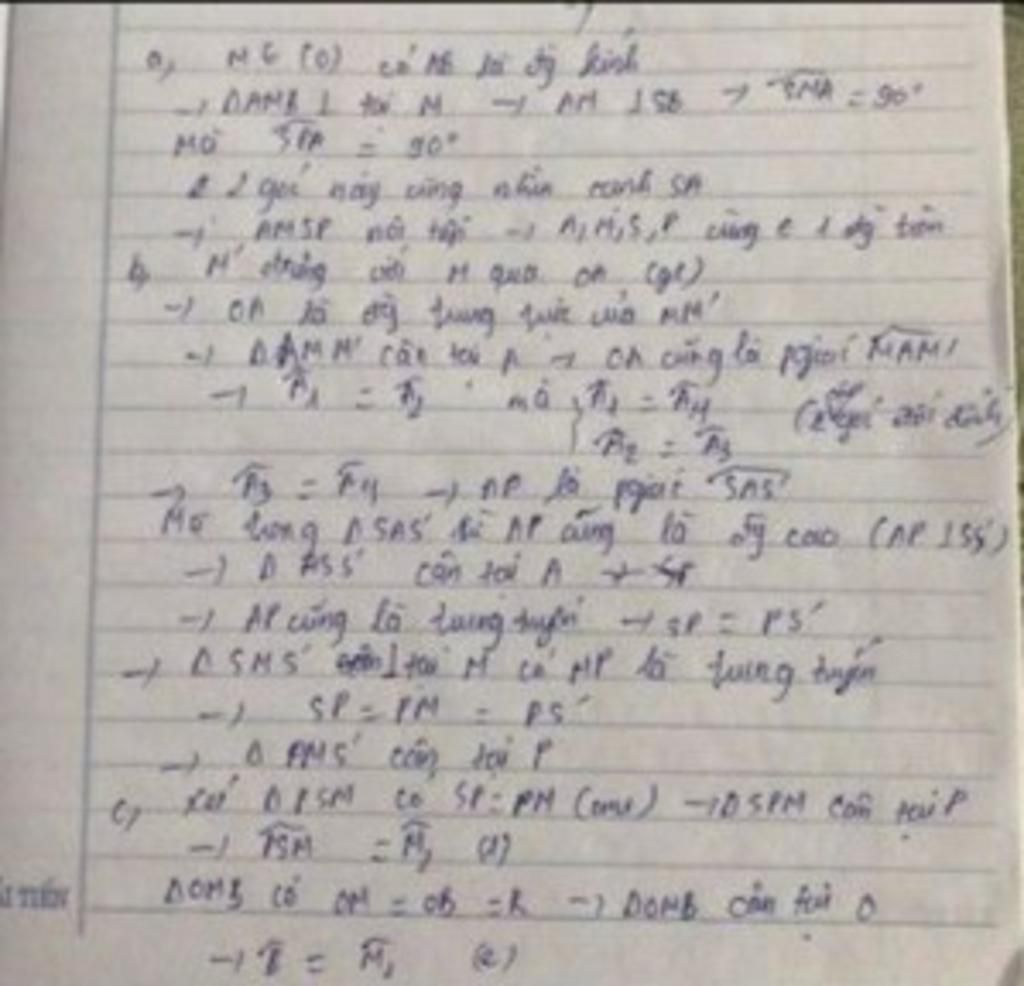 a, M ∈ (O) có AB là đg kính
→ ΔAMB ⊥ tại M → AM ⊥ SB → SMA = 90°
Mà SPA = 90°
2 góc này cùng nhìn cạnh SA
→ AMSP nội tiếp → A, M, S, P cùng ∈ 1 đg tròn
b, M' đxứng với M qua OA (gt)
→ OA là đg trung trực của MM'
→ ΔAMM' cân tại A → OA cũng là pgiác MAM'
→ A1 = A2 mà { A1 = A4 góc đối đỉnh)
A2 = A3
→ A3 = A4 → AP là pgiác SAS'
Mà trong ΔSAS' thì AP cũng là đg cao (AP ⊥ SS')
→ Δ ASS' cân tại A
→ AP cũng là trung tuyến → SP = PS'
→ Δ SMS' ⊥ tại M có MP là trung tuyến
→ SP = PM = PS'
→ Δ PMS' cân tại P
c, Xét ΔPSM có SP = PM (cmt) → ΔSPM cân tại P
→ PSM = M1 (1)
ΔOMB có OM = OB = R → ΔOMB cân tại O
→ B = M (2)
TIẾN